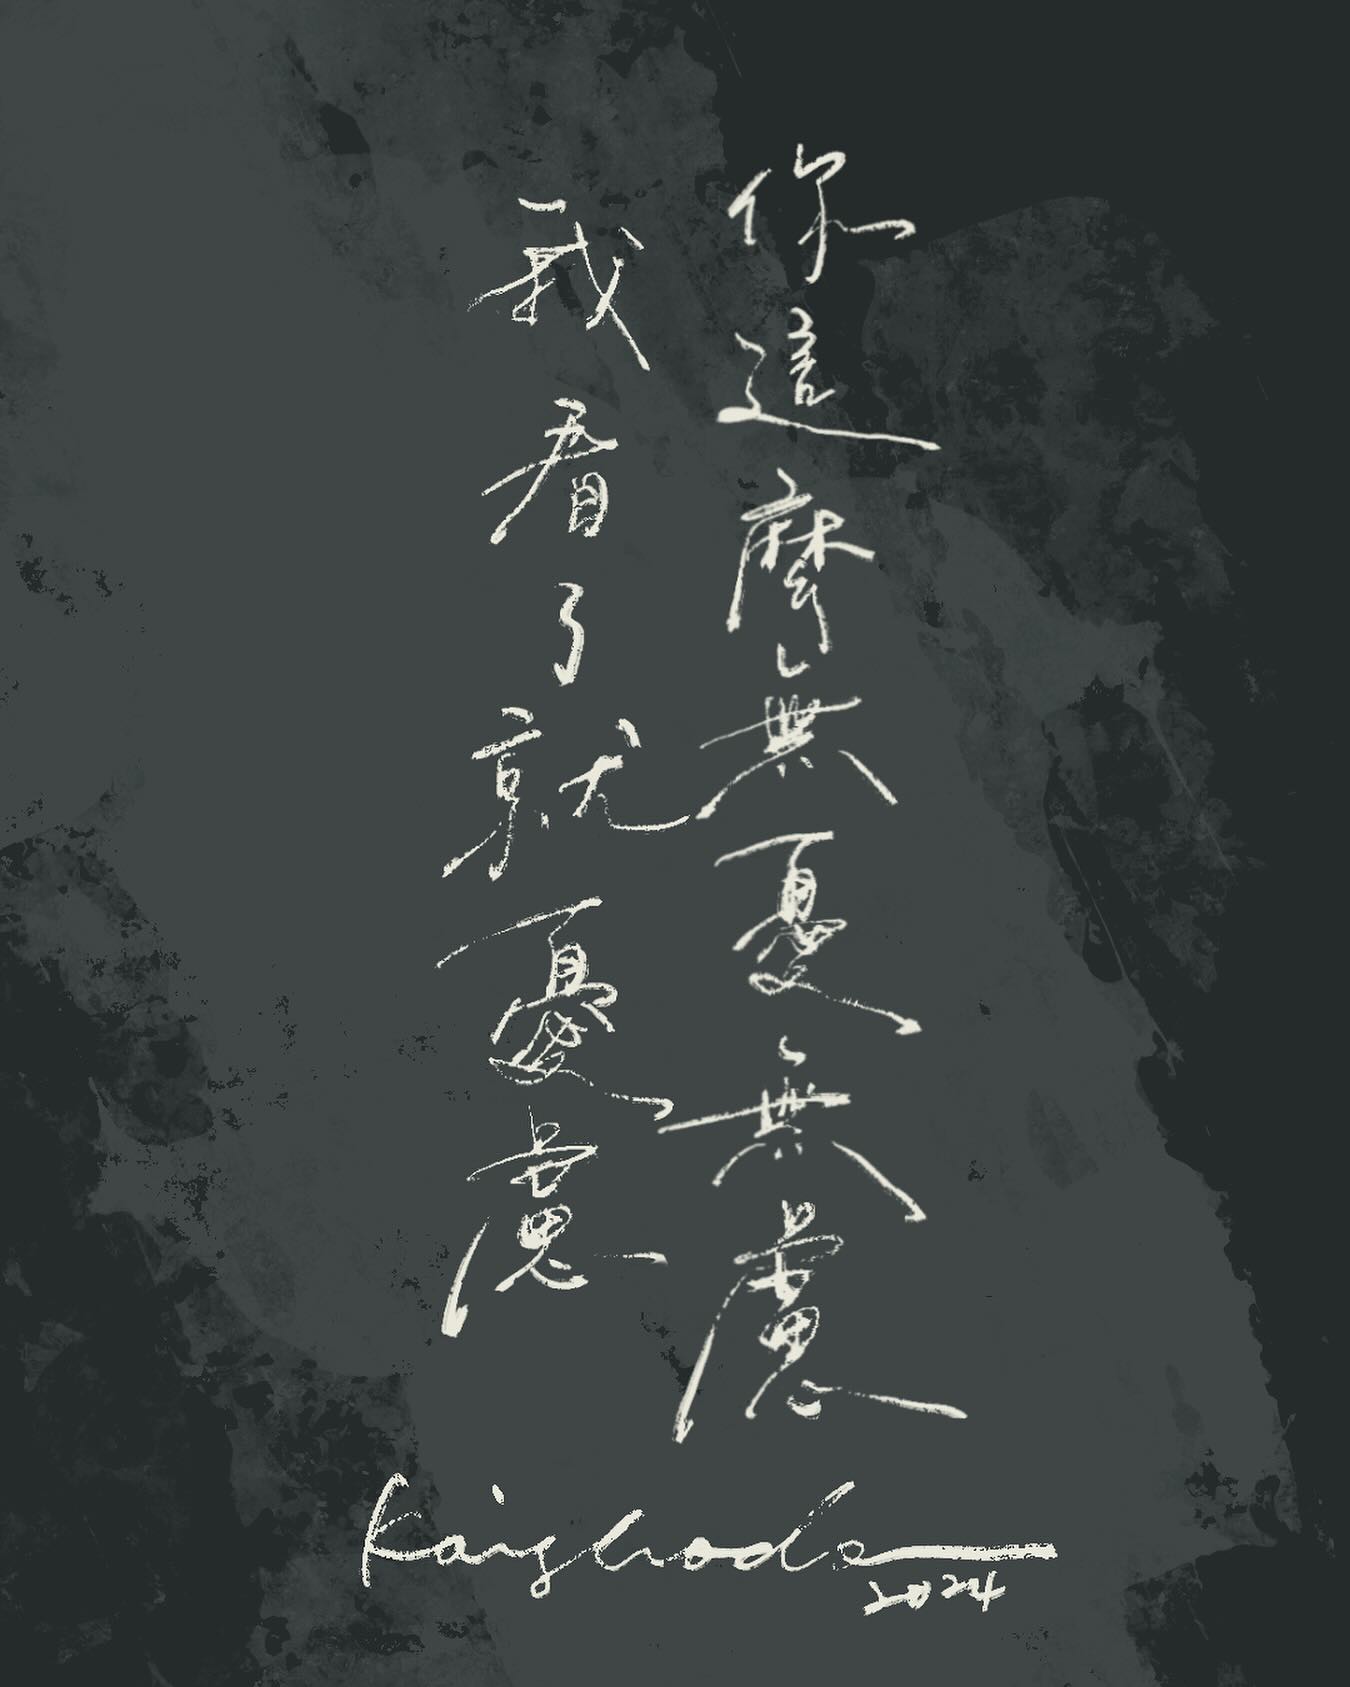 你這麼無憂無慮
我看了就憂慮
Kaishodo
2024